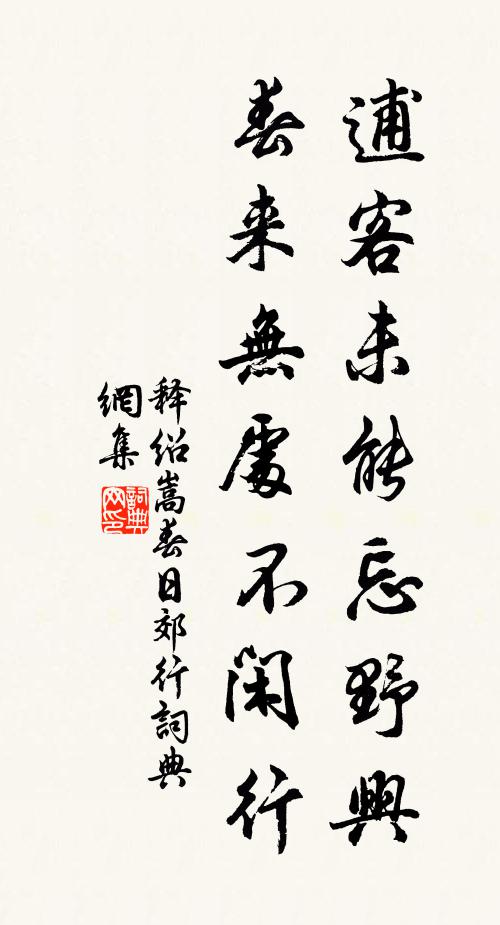 逋客未能忘野興
春来無處不閑行
释绍嵩春日郊行詞典
網集
詞典
网印